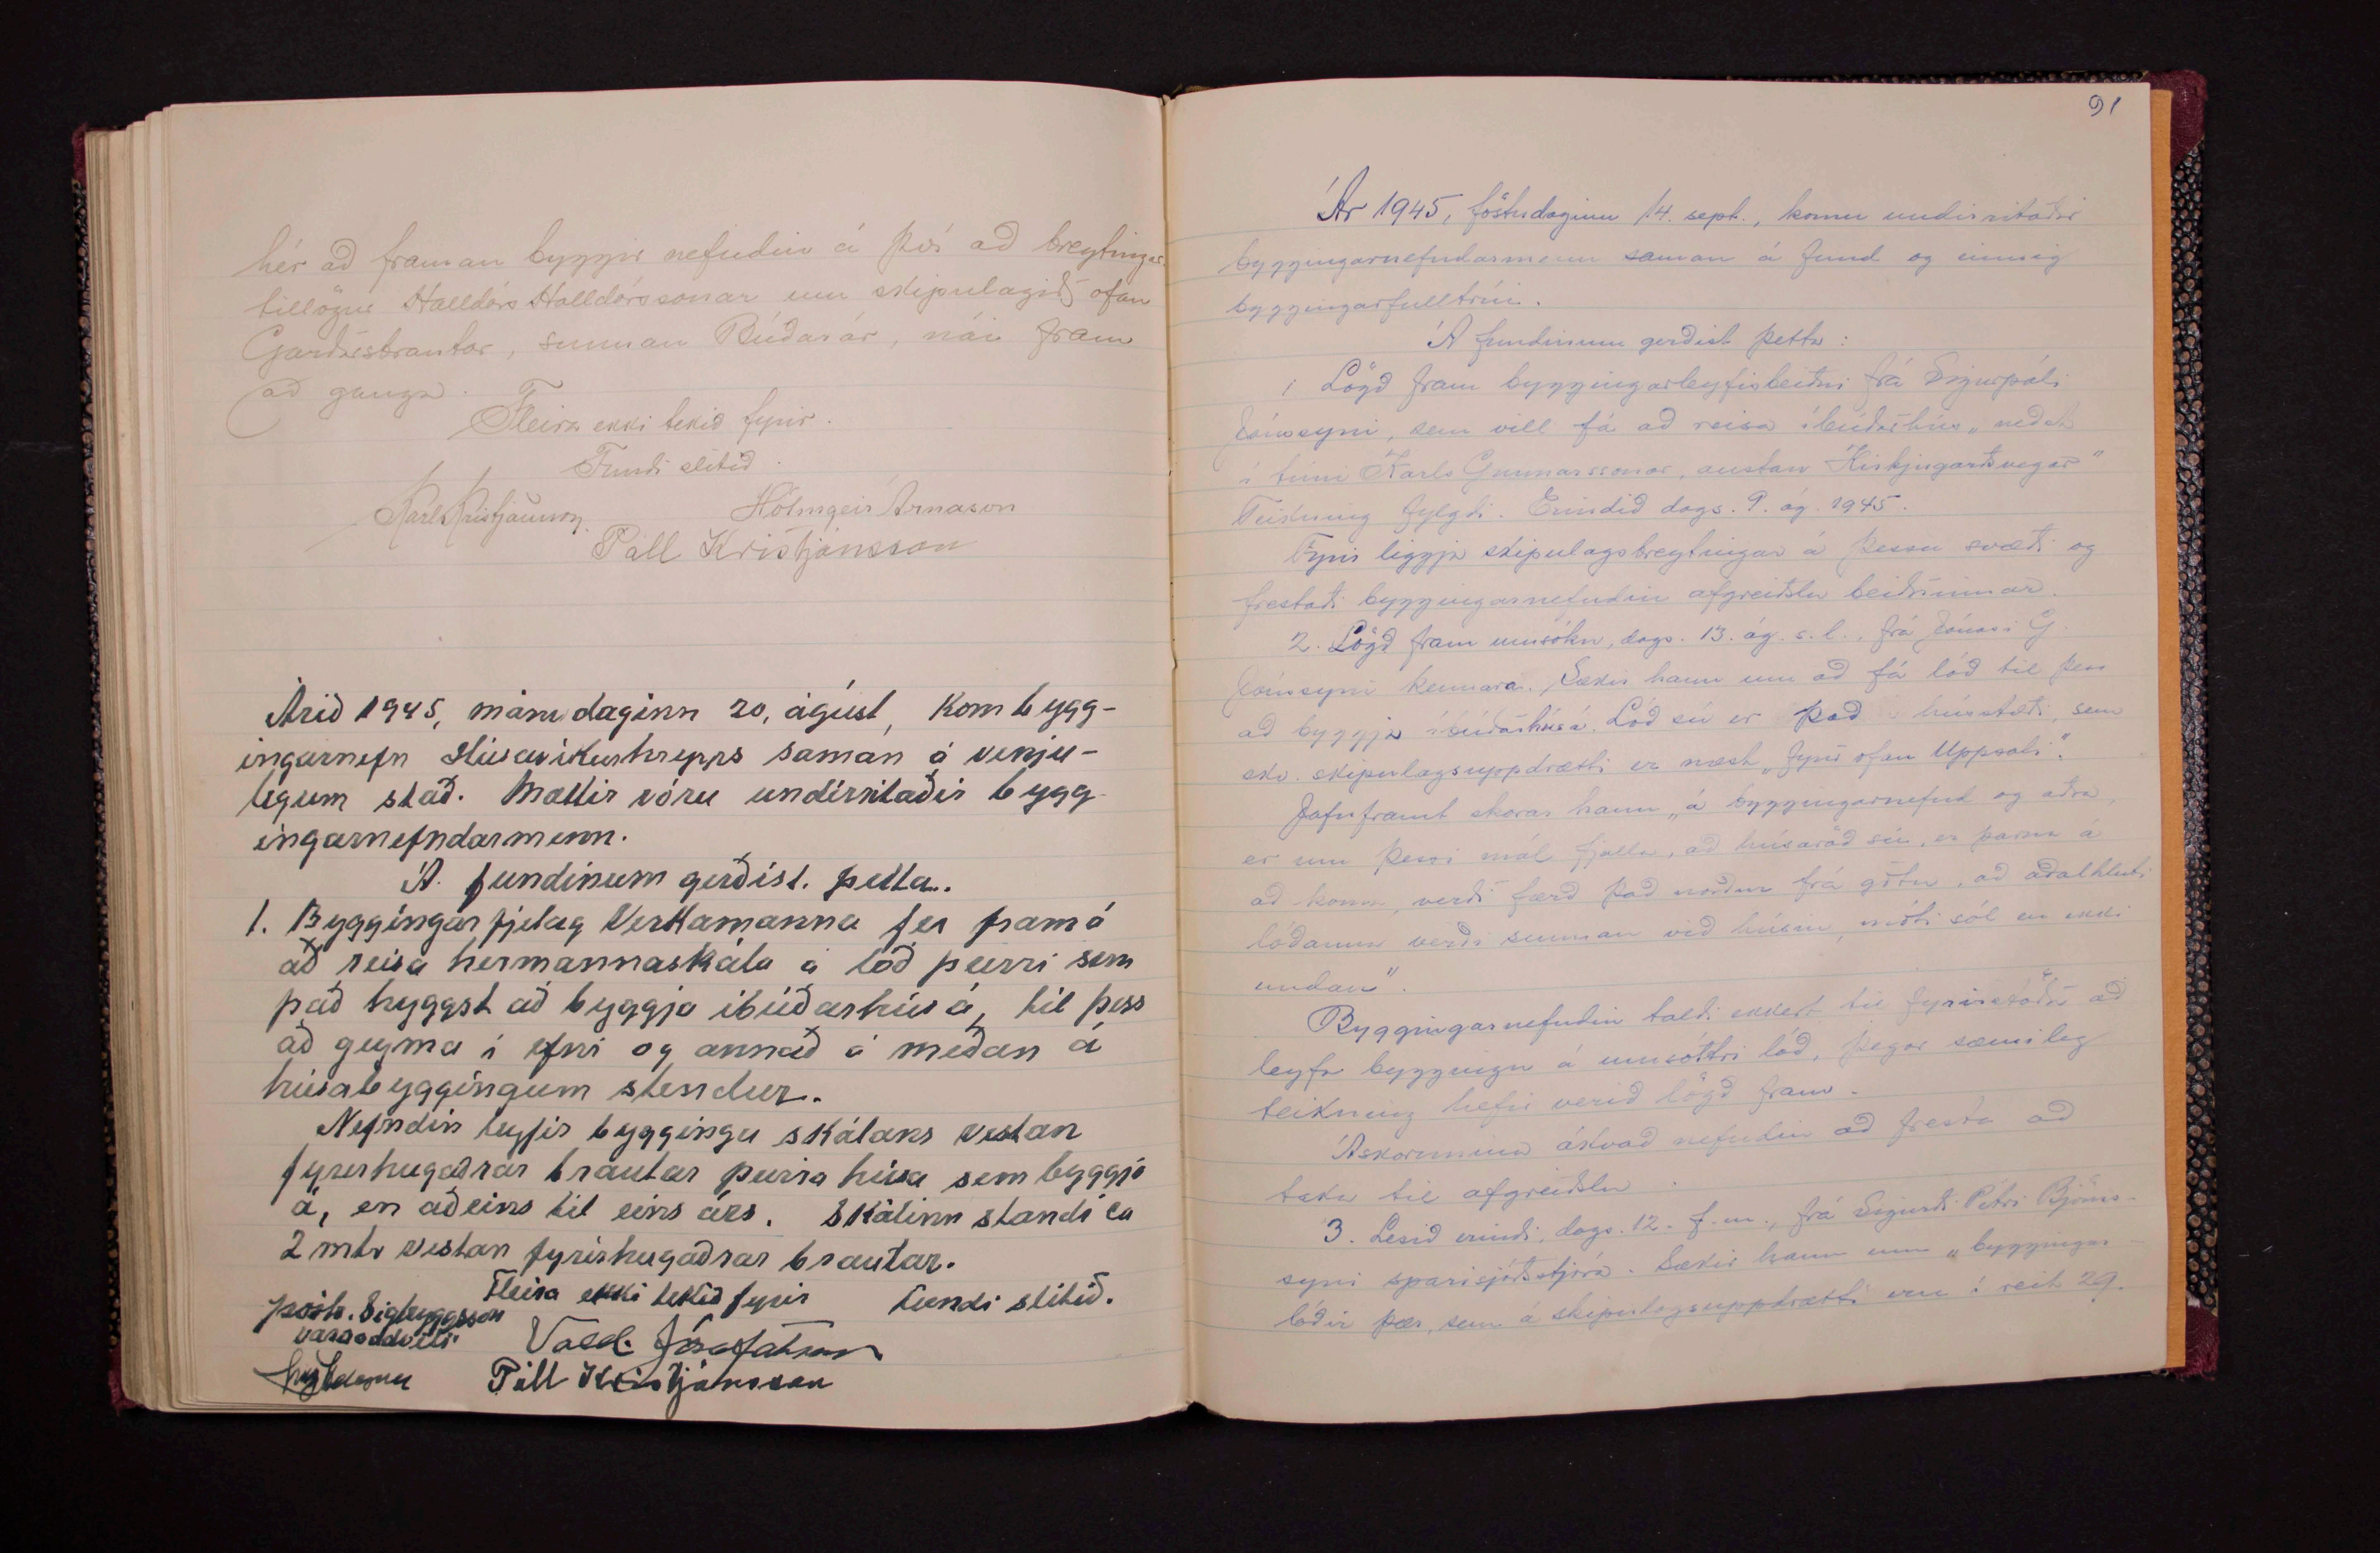 hér að framan byggir nefndin á því að breytingar-
tillögur Halldórs Halldórssonar um skipulagið ofan
Garðarsbrautar, sunnan Búðarár, nái fram
að ganga.
Fleira ekki tekið fyrir.
Fundi slitið.
Karl Kristjánsson Hólmgeir Árnason
Páll Kristjánsson
Árið 1945, mánudaginn 20, ágúst, kom bygg-
ingarnefn Húsavíkurhrepps saman á venju-
legum stað. Mættir vóru undirritaðir bygg-
ingarnefndarmenn.
Á. fundinum gerðist. þetta..
1. Byggingarfjelag Verkamanna fer fram á
að reisa hermannaskála á lóð þeirri sem
það hyggst að byggja ibúðarhús á, til þess
að geyma í efni og annað á meðan á
húsabyggingum stendur.
Nefndin leyfir byggingu skálans vestan
fyrirhugaðrar brautar þeirra húsa sem byggja
á, en aðeins til eins árs. Skálinn standi ca
2 mtr vestan fyrirhugaðrar brautar.
Fleira ekki tekið fyrir fundi slitið.
Þórh. Sigtryggsson
varaoddviti Vald. Jósafatsson
Páll Kristjánsson
91
Ár 1945, föstudaginn 14. sept., komu undirritaðir
byggingarnefndarmenn saman á fund og einnig
byggingarfulltrúi.
Á fundinum gerðist þetta:
1 Lögð fram byggingarleyfisbeiðni frá Sigurpáli
Jónssyni, sem vill fá að reisa íbúðarhús „neðst
í túni Karls Gunnarssonar, austan Kirkjugarðsvegar"
Teikning fylgdi. Erindið dags. 9. ág. 1945.
Fyrir liggja skipulagsbreytingar á þessu svæði og
frestaði byggingarnefndin afgreiðslu beiðninnar.
2. Lögð fram umsókn, dags. 13. ág. s.l., frá Jónasi G
Jónssyni kennara. Sækir hann um að fá lóð til þess
að byggja íbúðarhús á. Lóð sú er það húsatæði, sem
skv. skipulagsuppdrætti er næst „fyrir ofan Uppsali".
Jafnframt skorar hann „á byggingarnefnd og aðra,
er um þessi mál fjalla, að húsaröð sú, er þarna á
að koma, verði færð það norður frá götu, að aðalhluti
lóðanna verði sunnan við húsin, móti sól en ekki
undan".
Byggingarnefndin taldi ekkert til fyrirstöðu að
leyfa byggingu á umsóttri lóð, þegar sæmileg
teikning hefir verið lögð fram.
Áskorunina ákvað nefndin að fresta að
taka til afgreiðslu.
3. Lesið erindi, dags. 12. f.m., frá Sigurði Pétri Björns-
syni sparisjóðsstjóra. Sækir hann um „byggingar-
lóðir þær, sem á skipulagsuppdrætti eru í reit 29.